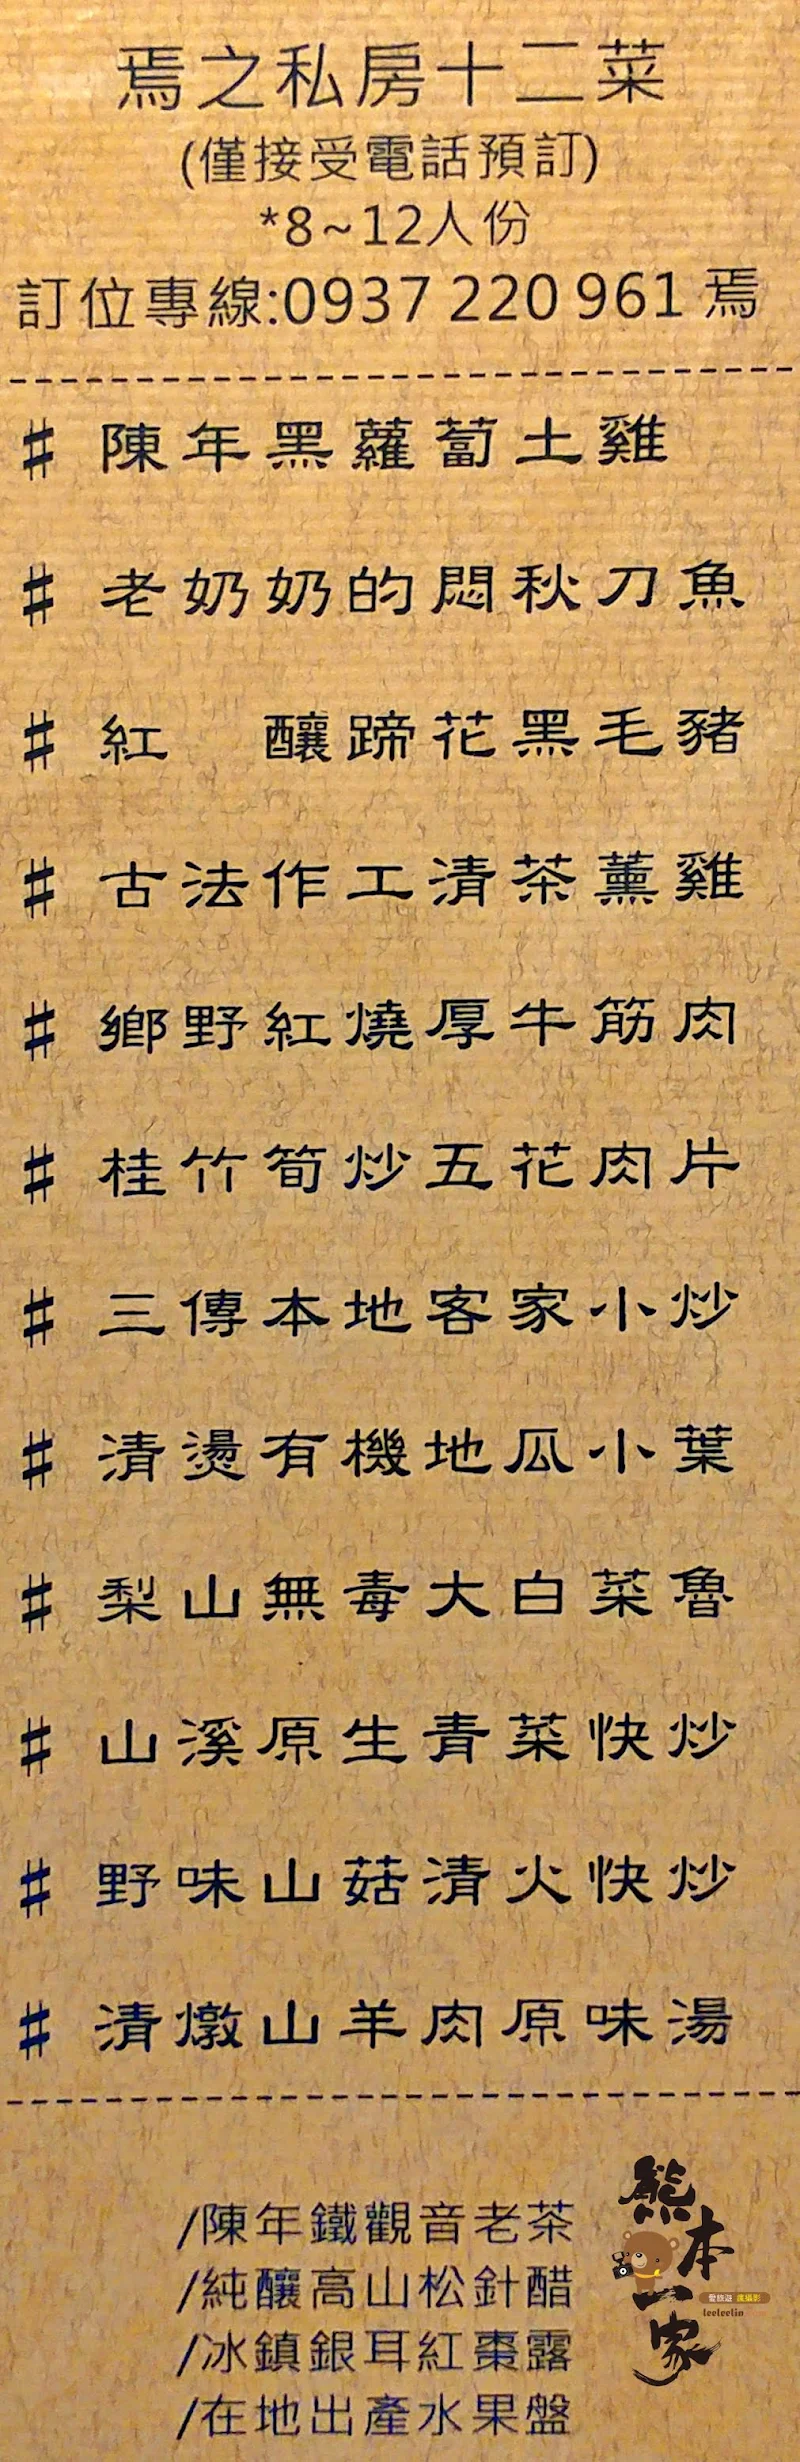 焉之私房十二菜
(僅接受電話預訂)
*8~12人份
訂位專線:0937 220 961 焉
# 陳年黑蘿蔔土雞
# 老奶奶的悶秋刀魚
# 紅　釀蹄花黑毛豬
# 古法作工清茶薰雞
# 鄉野紅燒厚牛筋肉
# 桂竹筍炒五花肉片
# 三傳本地客家小炒
# 清燙有機地瓜小葉
# 梨山無毒大白菜魯
# 山溪原生青菜快炒
# 野味山菇清火快炒
# 清燉山羊肉原味湯
/陳年鐵觀音老茶
/純釀高山松針醋
/冰鎮銀耳紅棗露
/在地出產水果盤
熊本一家
愛旅遊 瘋攝影
leeleelin